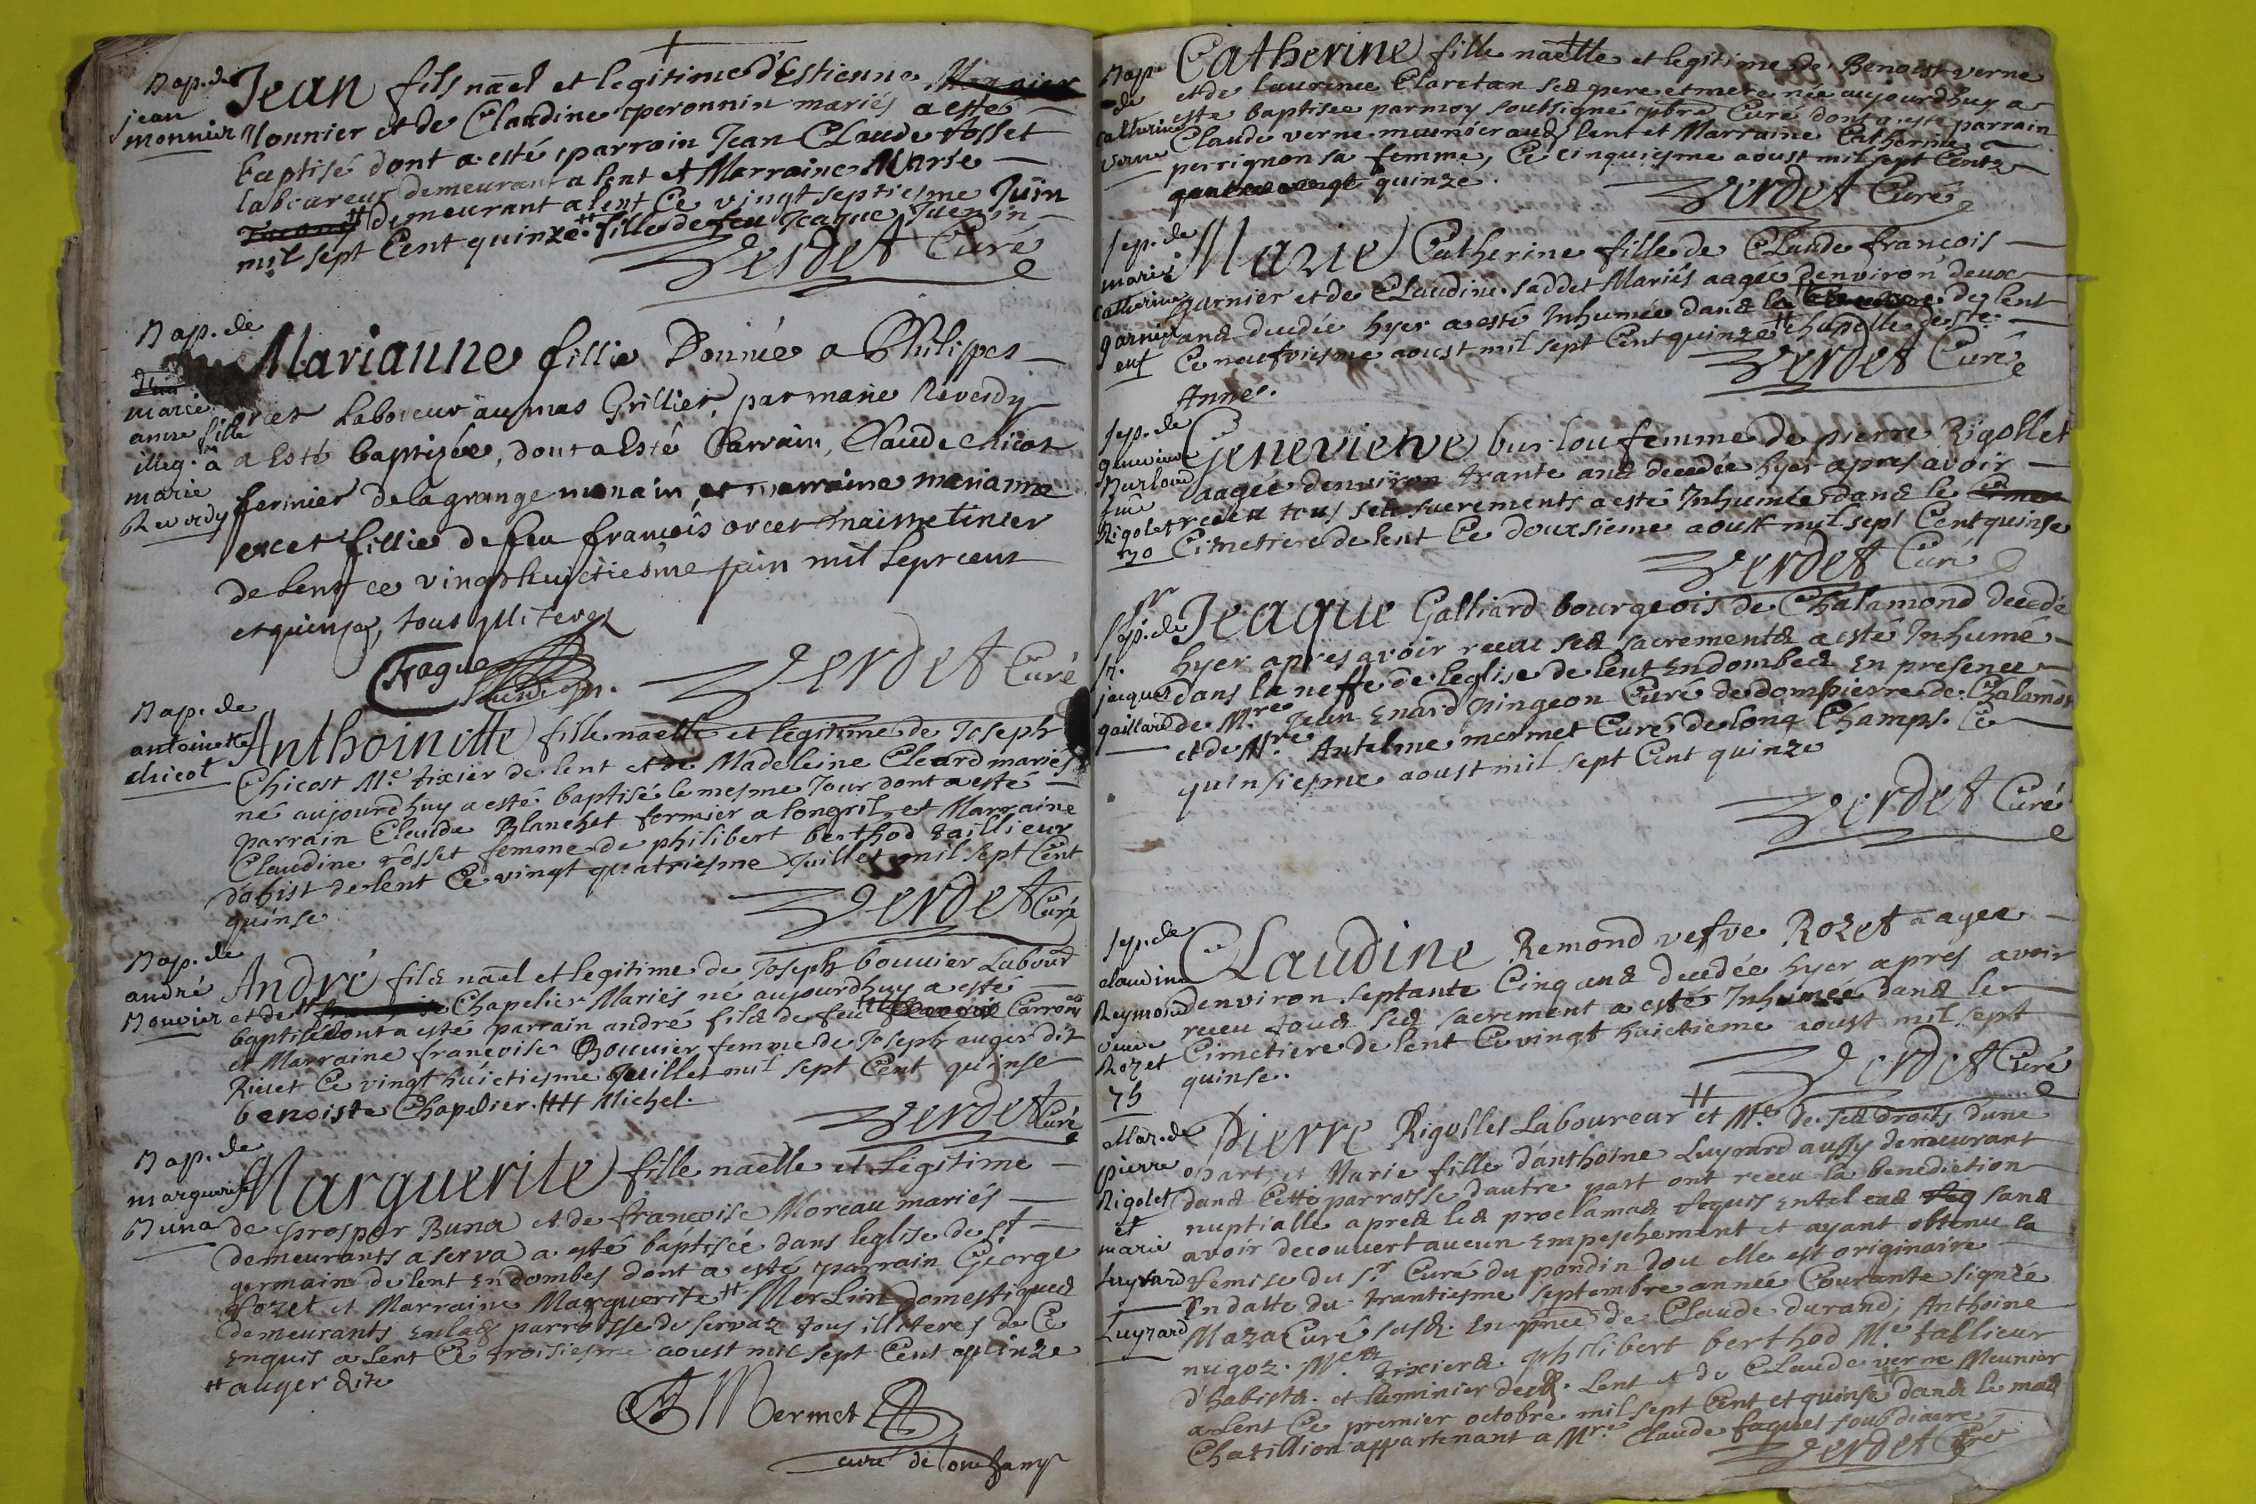 Bap. de
jean
monnier
Jean fils nãel et legitime d'Estienne
Monnier et de Claudine peronnin mariés a esté
baptisé dont a esté parroin Jean Claude fosset
laboureur demeurant a lent et Marraine Marie
demeurant a lent Ce vingt septiesme Juin
mil sept Cent quinze. # fille de feu Jeaque Juenin
Verdet Curé
Bap. de
marie
anne fille
illeg. à
marie
Reverdy
Marianne fillie Donnée a Philippes
orcet Laboreur au mas Grillier, par marie Reverdy
a Esté baptizée, dont a Esté Parrain, Claude chicot
fermier de la grange monain, et marraine marianne
orcet fillie de feu françois orcet maime tinier
de Lent ce vingt huictiesme juin mil sept cent
et quinze, tous illiterez
Verdet Curé
Bap. de
antoinette
chicot
Anthoinette fille naelle et legitime de Joseph
Chicost Me tixier de lent et de Madeleine Cleard mariés
né aujourdhuy a esté baptisé le mesme Jour dont a esté
parrain Claude Blanchet fermier a longril, et Marraine
Claudine rosset femme de philibert berthod taillieur
dabist de lent Ce vingt quatriesme Juillet mil sept Cent
quinse
Verdet Curé
Bap. de
andré
Bouvier
André fils nael et legitime de Joseph bouvier Labour
et de # Chapelier Mariés né aujourdhuy a este
baptisé dont a esté parrain andré fils de feu Carron
et Marraine françoise Bouvier femme de Joseph auger dit
Rivet Ce vingt huictiesme Juillet mil sept Cent quinse
benoiste Chapelier. ## Michel.
Verdet Curé
Bap. de
marguerite
Buna
Marguerite fille naelle et Legitime
de prosper Buna et de françoise Moreau mariés
demeurants a serva a esté baptisée dans leglise de st
germain de lent en dombes dont a este parrain George
fozet et Marraine Marguerite # Merlin domestiques
demeurants parroisse de servaz tous illiteres de Ce
enquis a Lent Ce troisiesme aoust mil sept Cent quinze
# auger dite
Mermet
curé de lonchamp
Bap.
de
catherine
verne
Catherine fille naelle et legitime de Benoist verne
et de laurence Claretan ses pere et mere née aujourdhuy a
este baptisee par moy soubsigné pbre Curé dont a este parrain
Claude verne munier aud lent et Marraine Catherine
perrignon sa femme, Ce cinquiesme aoust mil sept Cents
quinze.
Verdet Curé
sep. de
marie
catherine
garnier
enf
Marie Catherine fille de Claude françois
garnier et de Claudine saddet Mariés aagée denviron deux
ans decedée hyer a esté Inhumée dans la de lent
Ce neufviesme aoust mil sept Cent quinze # chapelle de ste.
Anne.
Verdet Curé
sep. de
genevieve
Burlou
fme
Rigolet
30
Genevieve bur lou femme de pierre Rigollet
aagée denviron trante ans decedée hyer apres avoir
receu tous ses sacrements a esté Inhumée dans le
Cimetiere de lent Ce douxsieme aoust mil sept Cent quinse
Verdet Curé
sep. de
sr.
jacques
gaillard
Jeaque Galliard bourgeois de Chalamond decedé
hyer apres avoir receu ses sacrements a esté Inhumé
dans la neffe de leglise de lent En dombes En presence
de Mre Jean Enard Pingeon Curé de dompierre de Chalamon
et de Mre Antelme mermet Curé de long Champs. Ce
quinsiesme aoust mil sept Cent quinze
Verdet Curé
sep. de
claudine
Reymond
veuve
Rozet
75
Claudine Remond vefve Rozet aagee
denviron septante Cinq ans decedée hyer apres avoir
receu tous ses sacrement a esté Inhumée dans le
Cimetiere de lent Ce vingt huictieme aoust mil sept
quinse.
Verdet Curé
Mar. de
pierre
Rigolet
et
marie
Luysard
Luyzard
Pierre Rigollet Laboureur # et Me de ses droits dune
part, et Marie fille d'anthoine Luysard aussy demeurant
dans Cette parroisse dautre part ont receu la benediction
nuptialle apres les proclamas requis En tel cas sans
avoir decouvert aucun Empeschement et ayant obtenu la
remise du sr Curé du pondin dou elle est originaire
En datte du trantiesme septembre année Courante signée
Maza Curé En pnce de Claude durand, Anthoine
nugoz. Mes tixiers philibert berthod Me tallieur
d'habists. et luminier dud. Lent et de Claude verne Meunier
a lent Ce premier octobre mil sept Cent et quinse # dans le mas
Chatillion appartenant a Mre Claude faques soubdiacre
Verdet Curé